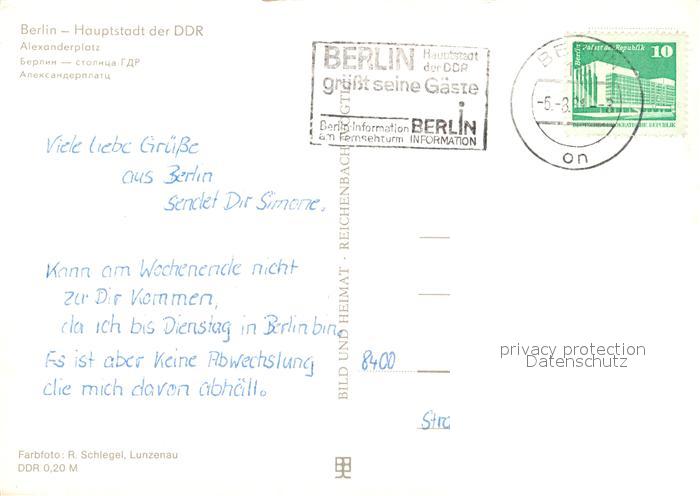 Berlin – Hauptstadt der DDR
Alexanderplatz
Берлин — столица ГДР
Александерплатц
BERLIN Hauptstadt
der DDR
grüßt seine Gäste
Berlin-Information BERLIN
am Fernsehturm INFORMATION
Berlin Palast der Republik 10
-6.-3.
on
Viele liebe Grüße
aus Berlin
sendet Dir Simone.
Kann am Wochenende nicht
zu Dir kommen,
da ich bis Dienstag in Berlin bin.
Es ist aber keine Abwechslung
die mich davon abhält.
BILD UND HEIMAT · REICHENBACH
8400
Str
privacy protection
Datenschutz
Farbfoto: R. Schlegel, Lunzenau
DDR 0,20 M